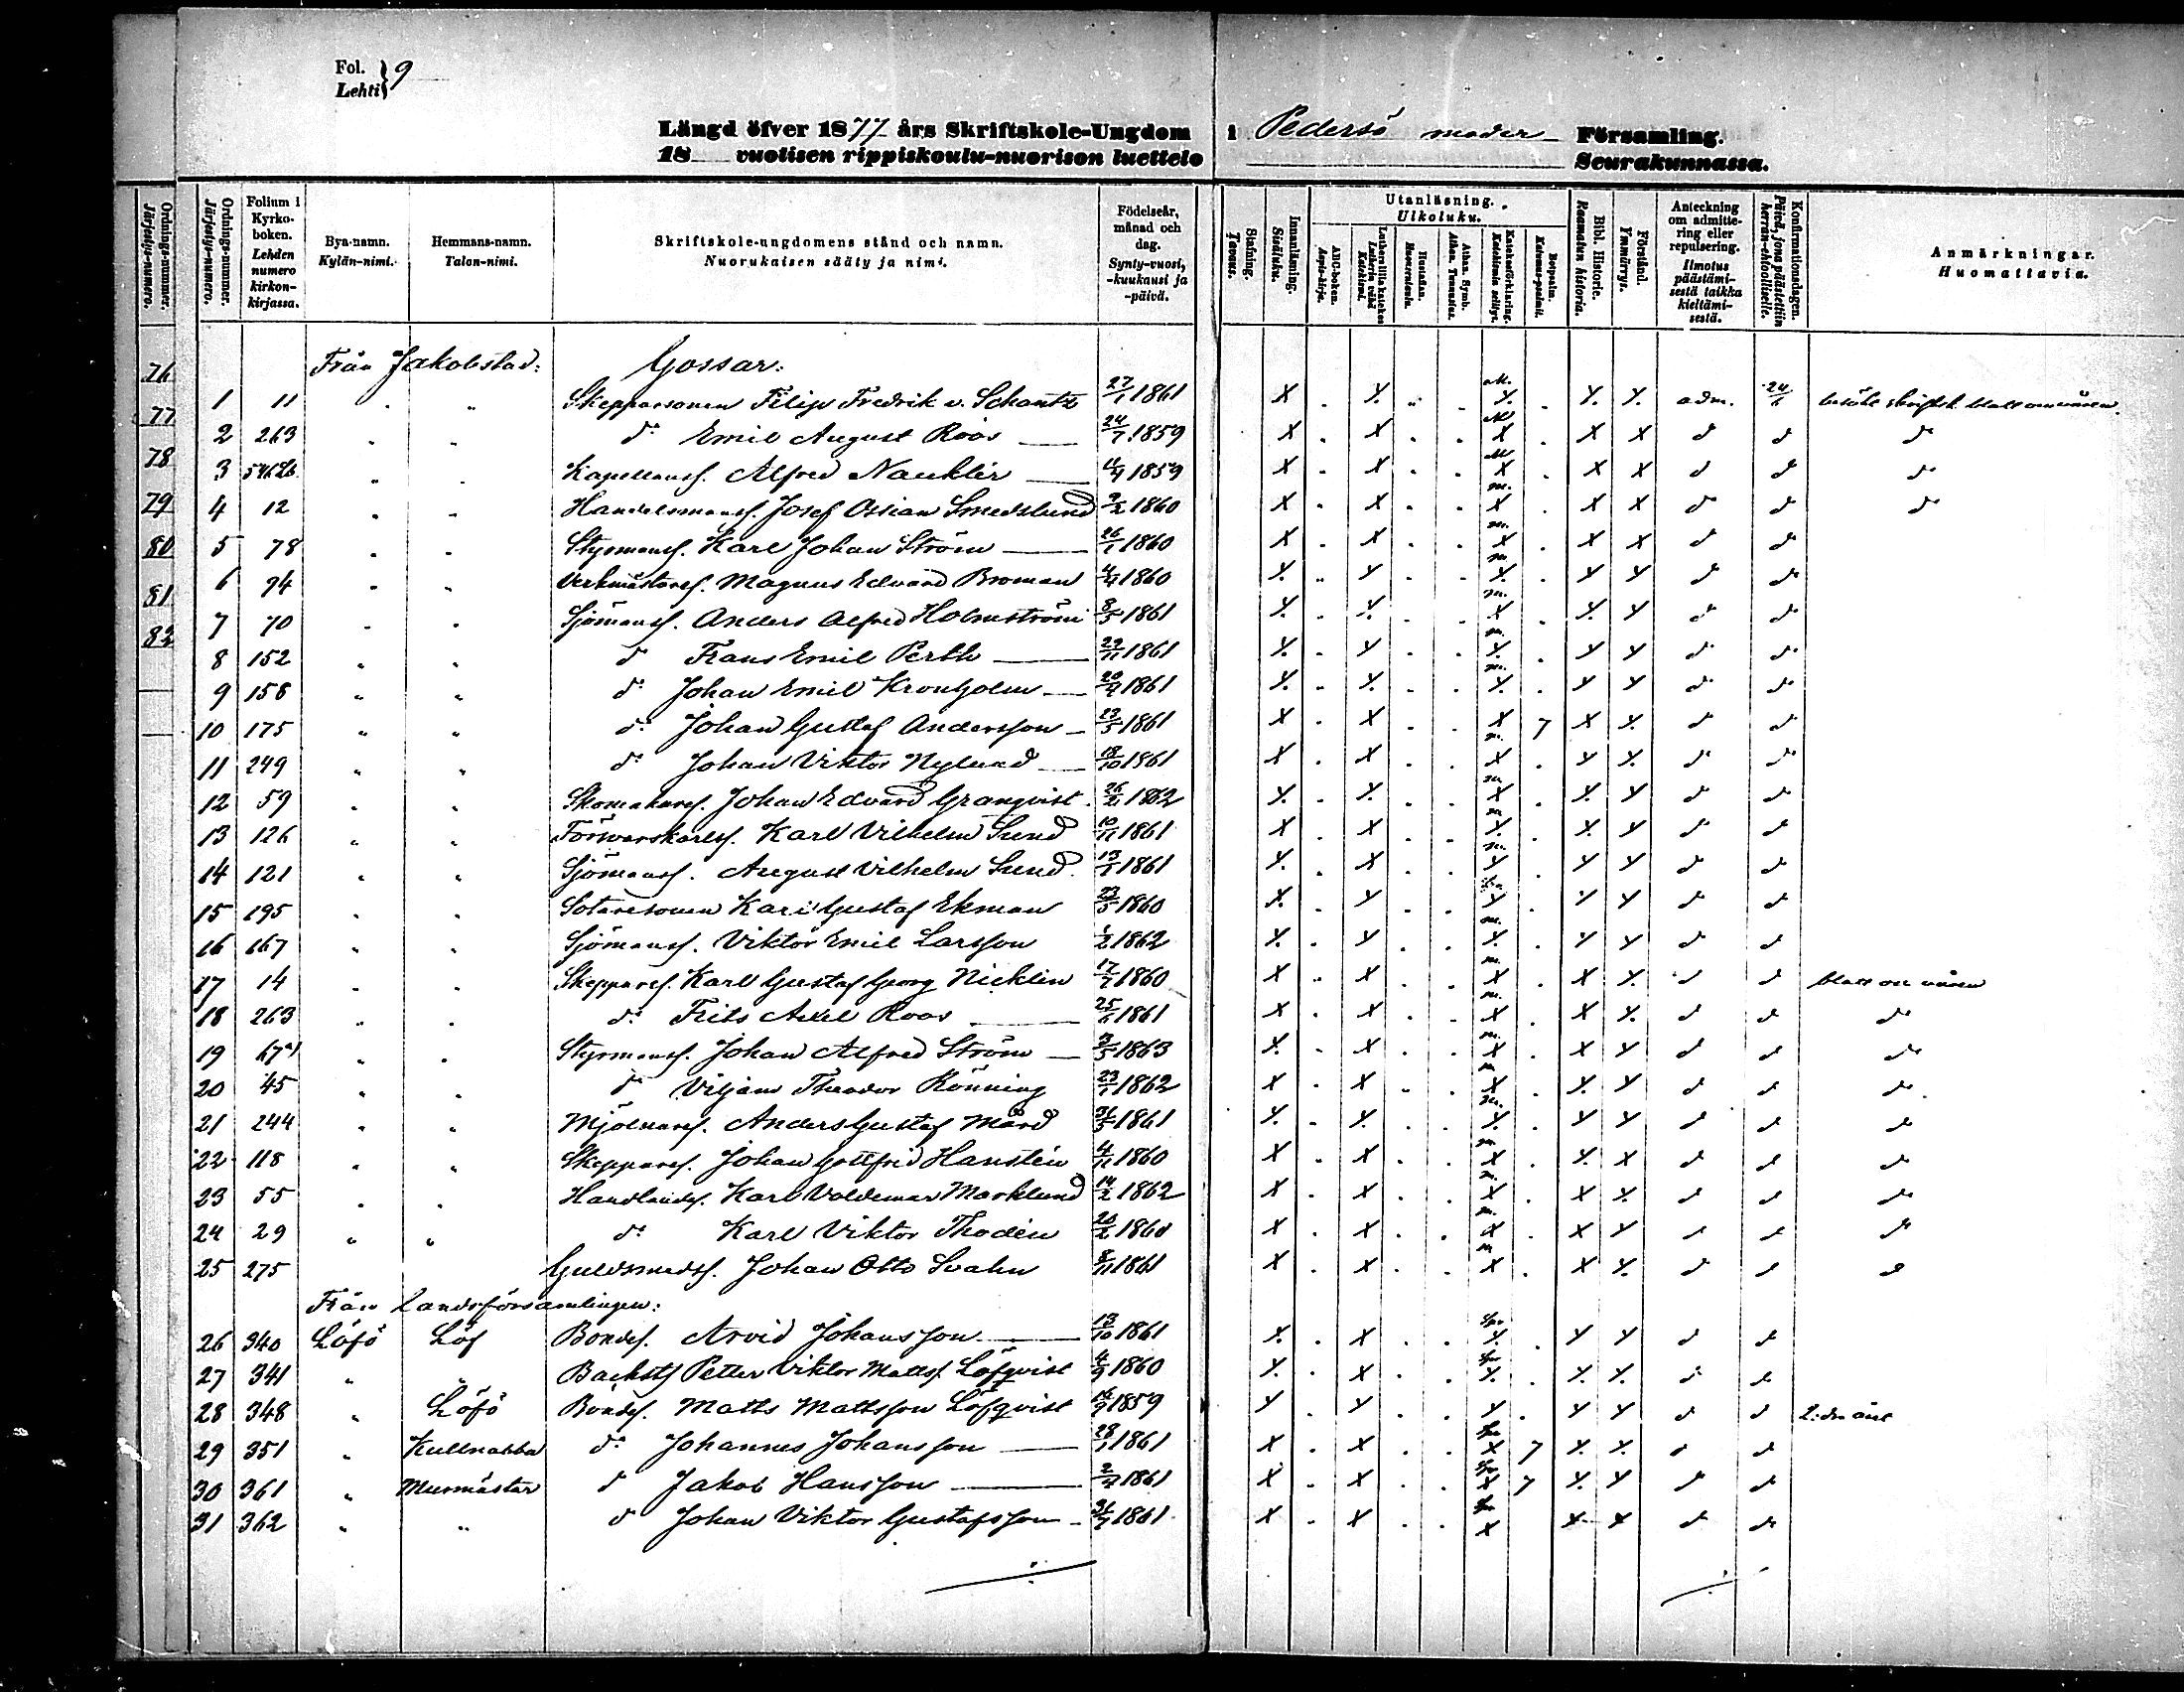 Fol. Lehti } 9
Längd öfver 1877 års Skriftskole-Ungdom i Pedersö moder Församling.
18 vuotisen rippiskoulu-nuorison luettelo Seurakunnassa.
Ordnings-nummer. Järjestys-numero.
Ordnings-nummer. Järjestys-numero.
Folium i Kyrkoboken. Lehden numero kirkon-kirjassa.
Bya-namn. Kylän-nimi.
Hemmans-namn. Talon-nimi.
Skriftskole-ungdomens stånd och namn. Nuorukaisen sääty ja nimi.
Födelseår, månad och dag. Synty-vuosi, -kuukausi ja -päivä.
Stafning. Tavaus.
Innanläsning. Sisäluku.
Utanläsning. Ulkoluku.
ABC-boken. Aapis-kirja.
Lutheri lilla katekes Lutherin vähä Katekismi.
Hustaflan. Huoneentaulu.
Athan. Symb. Athan. Tunnustus.
Katekesförklaring. Katekismin selitys.
Botpsalm. Katumus-psalmi.
Bibl. Historie. Raamatun historia.
Förstånd. Ymmärrys.
Anteckning om admittering eller repulsering. Ilmotus päästämisestä taikka kieltämisestä.
Konfirmationsdagen. Päivä, jona päästettiin herran-ehtoolliselle.
Anmärkningar. Huomattavia.
76
77
78
79
80
81
82
Från Jakobstad: Gossar:
1 11 " " Skepparsonen Filip Fredrik v. Schantz 27/1 1861 X . X. " . X. . X. X. adm. 24/6
2 263 " " d:o Emil August Roos 24/7 1859 X . X . . X . X X d:o d:o d:o
3 " " Kapellansf. Alfred Nauklér 1859 X . X . . X . X X d:o d:o d:o
4 12 " " Handelsmansf. Josef Ossian Smedslund 9/2 1860 X . X . . X . X X d:o d:o d:o
5 78 " " Styrmansf. Karl Johan Ström 26/1 1860 X . X . . X . X X d:o d:o
6 94 " " Verkmästaresf. Magnus Edvard Broman 1860 X. " X . . X. . X X d:o d:o
7 70 " " Sjömansf. Anders Alfred Holmström 8/5 1861 X. . X. . . X . X. X d:o d:o
8 152 " " d:o Frans Emil Perth 1861 X. . X . . X. . X X d:o d:o
9 158 " " d:o Johan Emil Kronholm 1861 X. . X. . . X. . X X d:o d:o
10 175 " " d:o Johan Gustaf Andersson 23/5 1861 X . X . . X 7 X X. d:o d:o
11 249 " " d:o Johan Viktor Nylund 18/10 1861 X . X . . X . X X. d:o d:o
12 59 " " Skomakaresf. Johan Edvard Granqvist 26/2 1862 X. . X. . . X . X. X d:o d:o
13 126 " " Karl Vilhelm Sund 10/11 1861 X . X . . X. . X. X d:o d:o
14 121 " " Sjömansf. August Vilhelm Sund 1861 X. . X . . X . X X d:o d:o
15 195 " " Sotaresonen Karl Gustaf Ekman 23/5 1860 X . X . . X . X X d:o d:o
16 167 " " Sjömansf. Viktor Emil Larsson 1/2 1862 X. . X . . X. . X X d:o d:o
17 14 " " Skepparesf. Karl Gustaf Georg Nicklin 17/7 1860 X " X . . X . X X. d:o d:o
18 263 " " d:o Frits Axel Roos 25/6 1861 X . X . . X . X X. d:o d:o d:o
19 " " Styrmansf. Johan Alfred Ström 3/5 1863 X . X . . X . X X d:o d:o d:o
20 45 " " d:o Viljam Theodor Rönning 23/1 1862 X . X . . X . X. X d:o d:o d:o
21 244 " " Mjölnaresf. Anders Gustaf Mård 31/5 1861 X. . X. . . X. . X X d:o d:o d:o
22 118 " " Skepparesf. Johan Gottfrid Hanstén 4/11 1860 X . X . . X . X. X d:o d:o d:o
23 55 " " Handlandesf. Karl Valdemar Marklund 14/2 1862 X . X . . X . X X. d:o d:o d:o
24 29 " " d:o Karl Viktor Thodén 1860 X . X . . X . X X d:o d:o d:o
25 275 Guldsmedsf. Johan Otto Svahn 8/11 1861 X . X . . X . X X. d:o d:o d:o
Från Landsförsamlingen:
26 340 Löfö Löf Bondef. Arvid Johansson 13/10 1861 X. . X . . X. . X X d:o d:o
27 341 " " Petter Viktor Mattsf. Löfqvist 4/9 1860 X. . X . . X. . X. X. d:o d:o
28 348 " Löfö Bondef. Matts Mattsson Löfqvist 1859 X . X . . X. . X X d:o d:o
29 351 " Kullnabba d:o Johannes Johansson 28/1 1861 X . X . . X 7 X. X. d:o d:o
30 361 " Murmästar d:o Jakob Hansson 1861 X . X . . X 7 X. X d:o d:o
31 362 " " d:o Johan Viktor Gustafsson 1861 X . X . . X X X d:o d:o